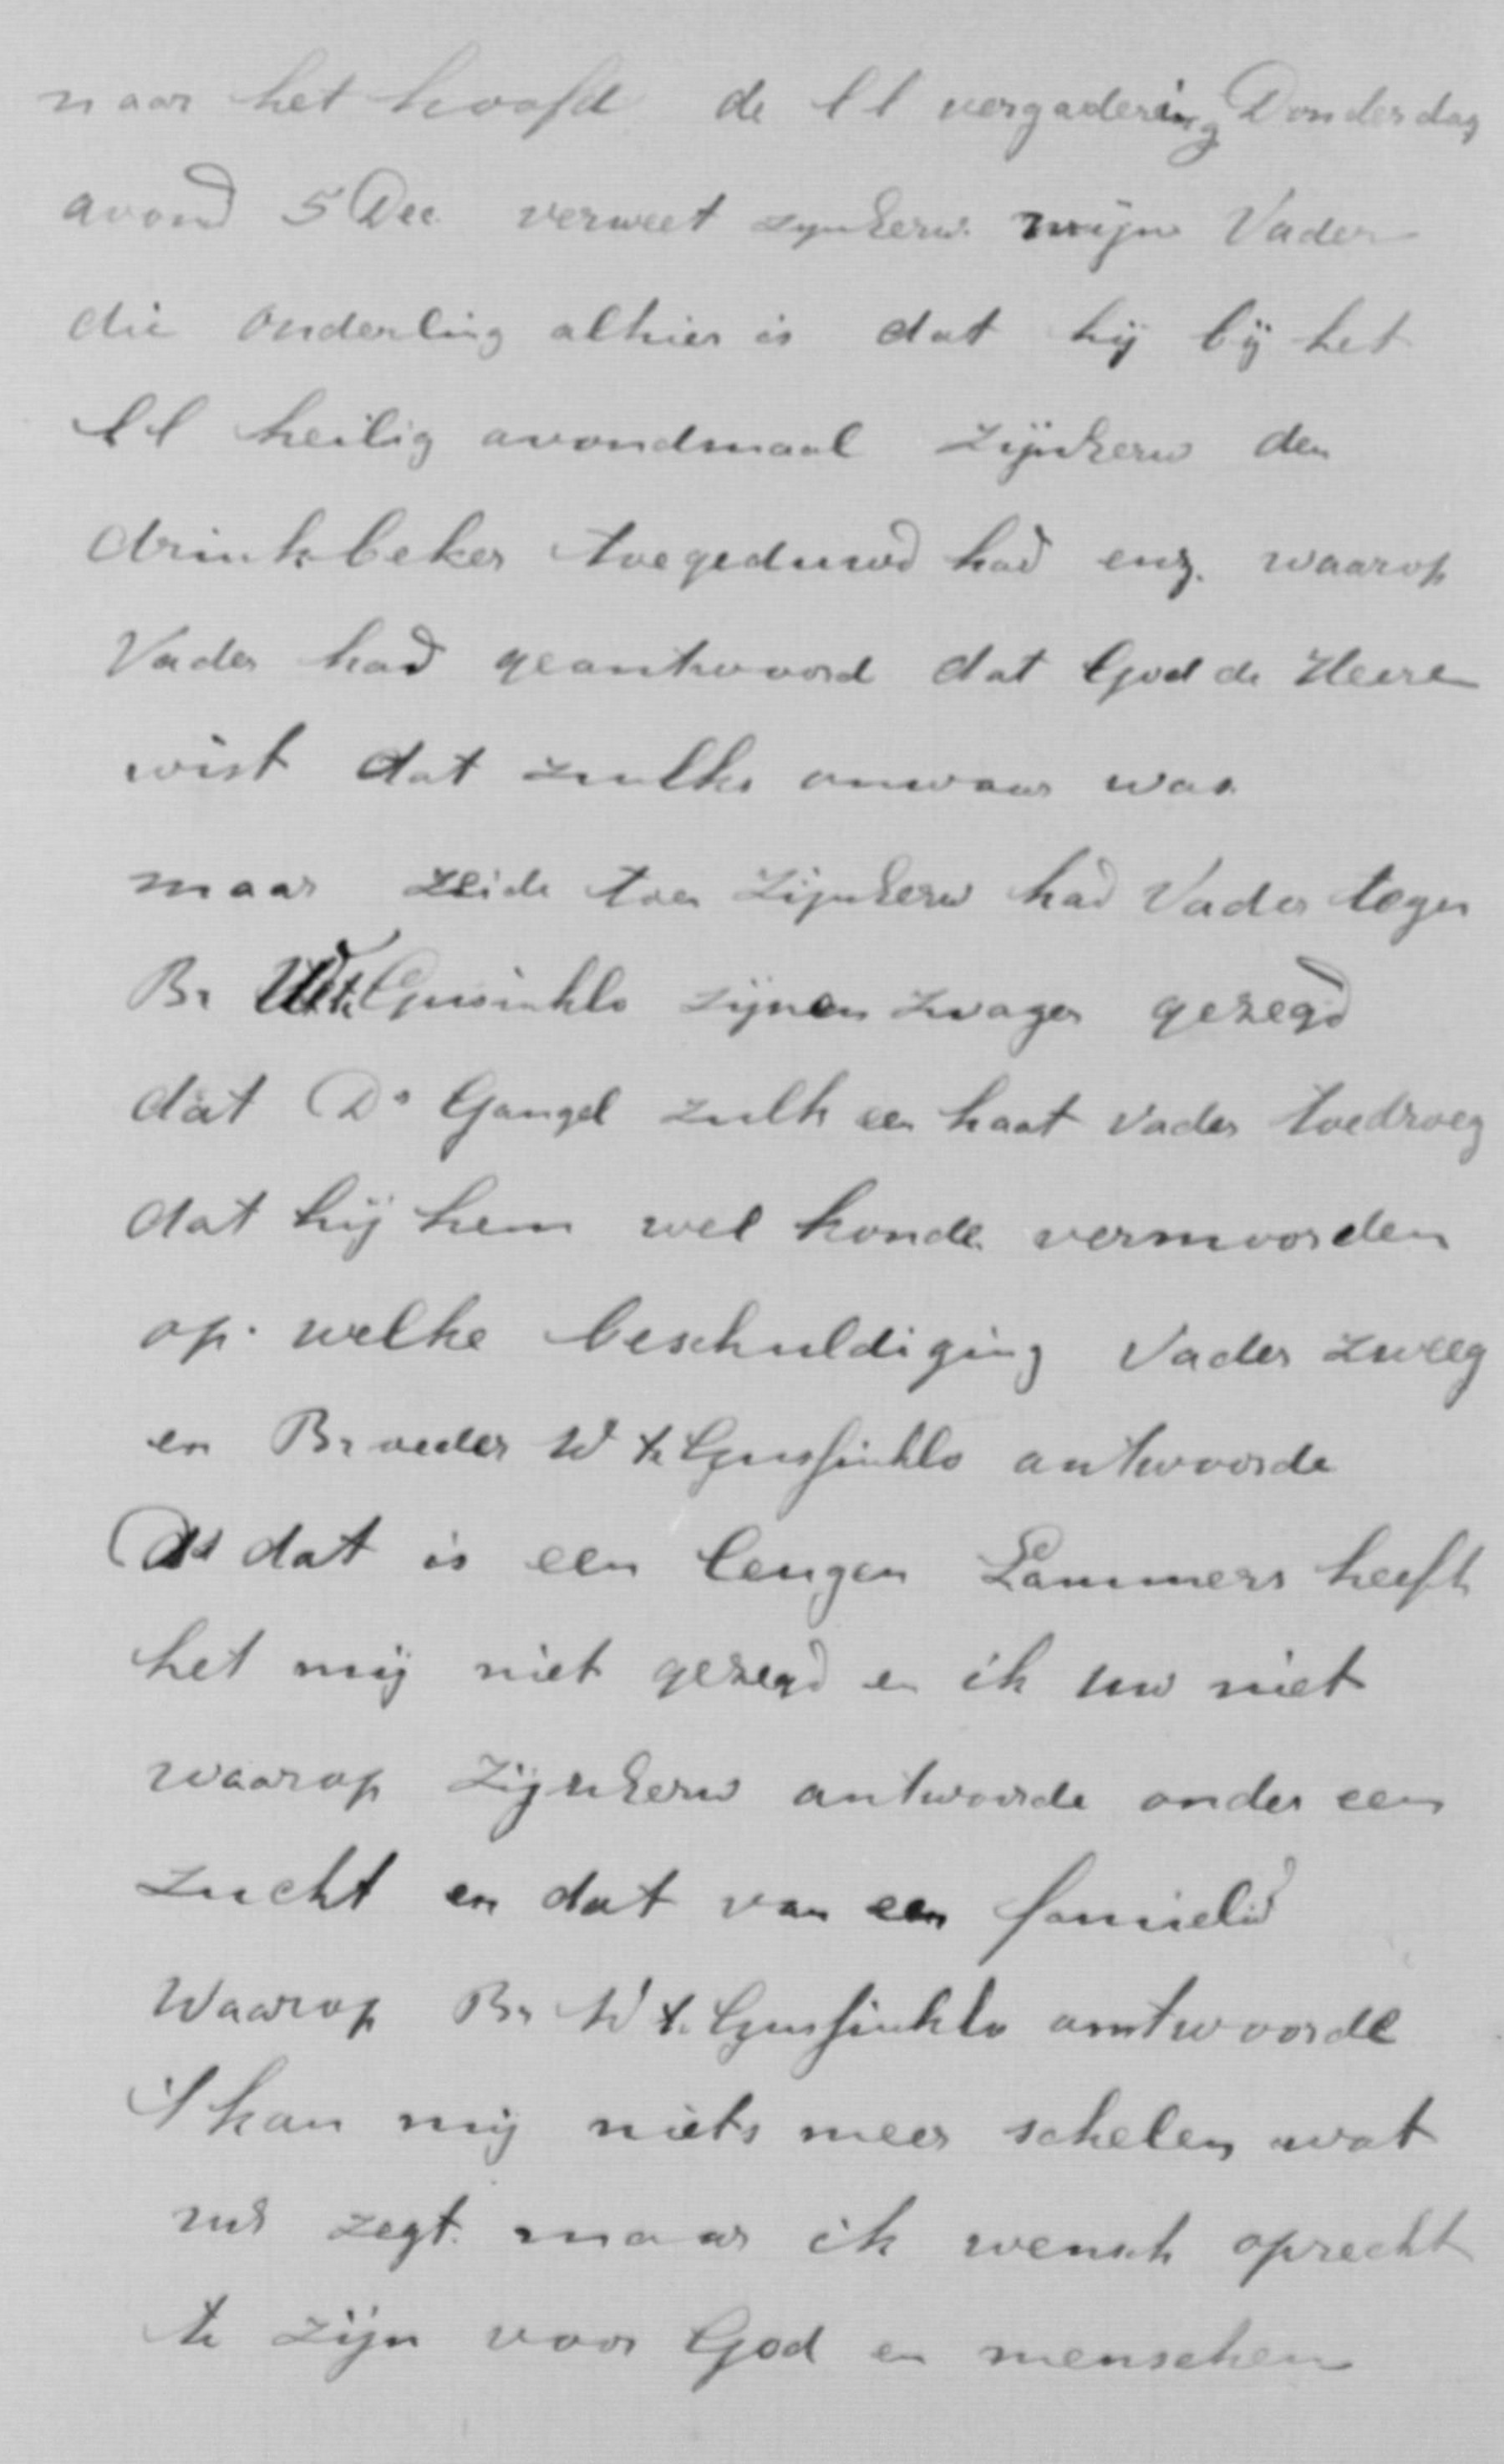 naar het hoofd de ll vergadering Donderdag
avond 5 Dec verweet zynEerw. mijn Vader
die Ouderling alhier is dat hij bij het
ll heilig avondmaal ZijnEerw den
drinkbeker toegeduwd had enz. waarop
Vader had geantwoord dat God de Heere
wist dat zulks onwaar was
maar zeide toen ZijnEerw had Vader tegen
Br Wt. Gussinklo zijnen zwager gezegd
dat Ds Gangel zulk een haat Vader toedroeg
dat hij hem wel konde vermoorden
op welke beschuldiging Vader zweeg
en Broeder W te Gussinklo antwoorde
Ds dat is een leugen Lammers heeft
het mij niet gezegd en ik uw niet
waarop ZijnEerw antwoorde onder een
zucht en dat van een famielid
Waarop Br W t. Gussinklo antwoorde
't kan mij niets meer schelen wat
zegt maar ik wensch oprecht
te zijn voor God en menschen